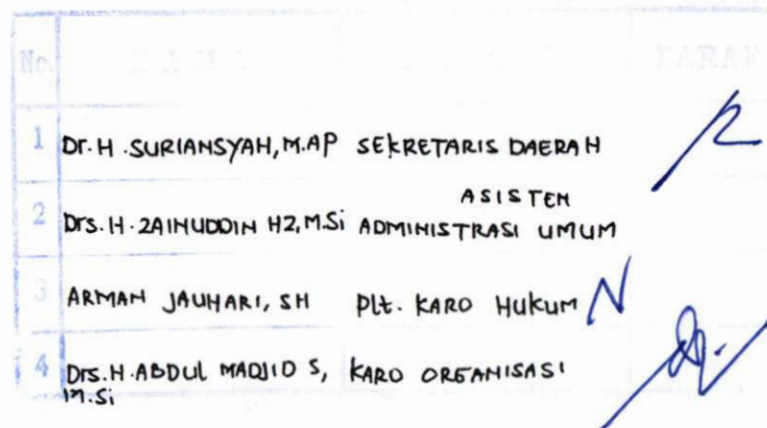 No. NAMA PARAF
1 Dr. H. SURIANSYAH, M.AP SEKRETARIS DAERAH
2 Drs. H. ZAINUDDIN HZ, M.Si ASISTEN ADMINISTRASI UMUM
3 ARMAN JAUHARI, SH Plt. KARO HUKUM
4 Drs. H. ABDUL MADJID S, KARO ORGANISASI
M.Si